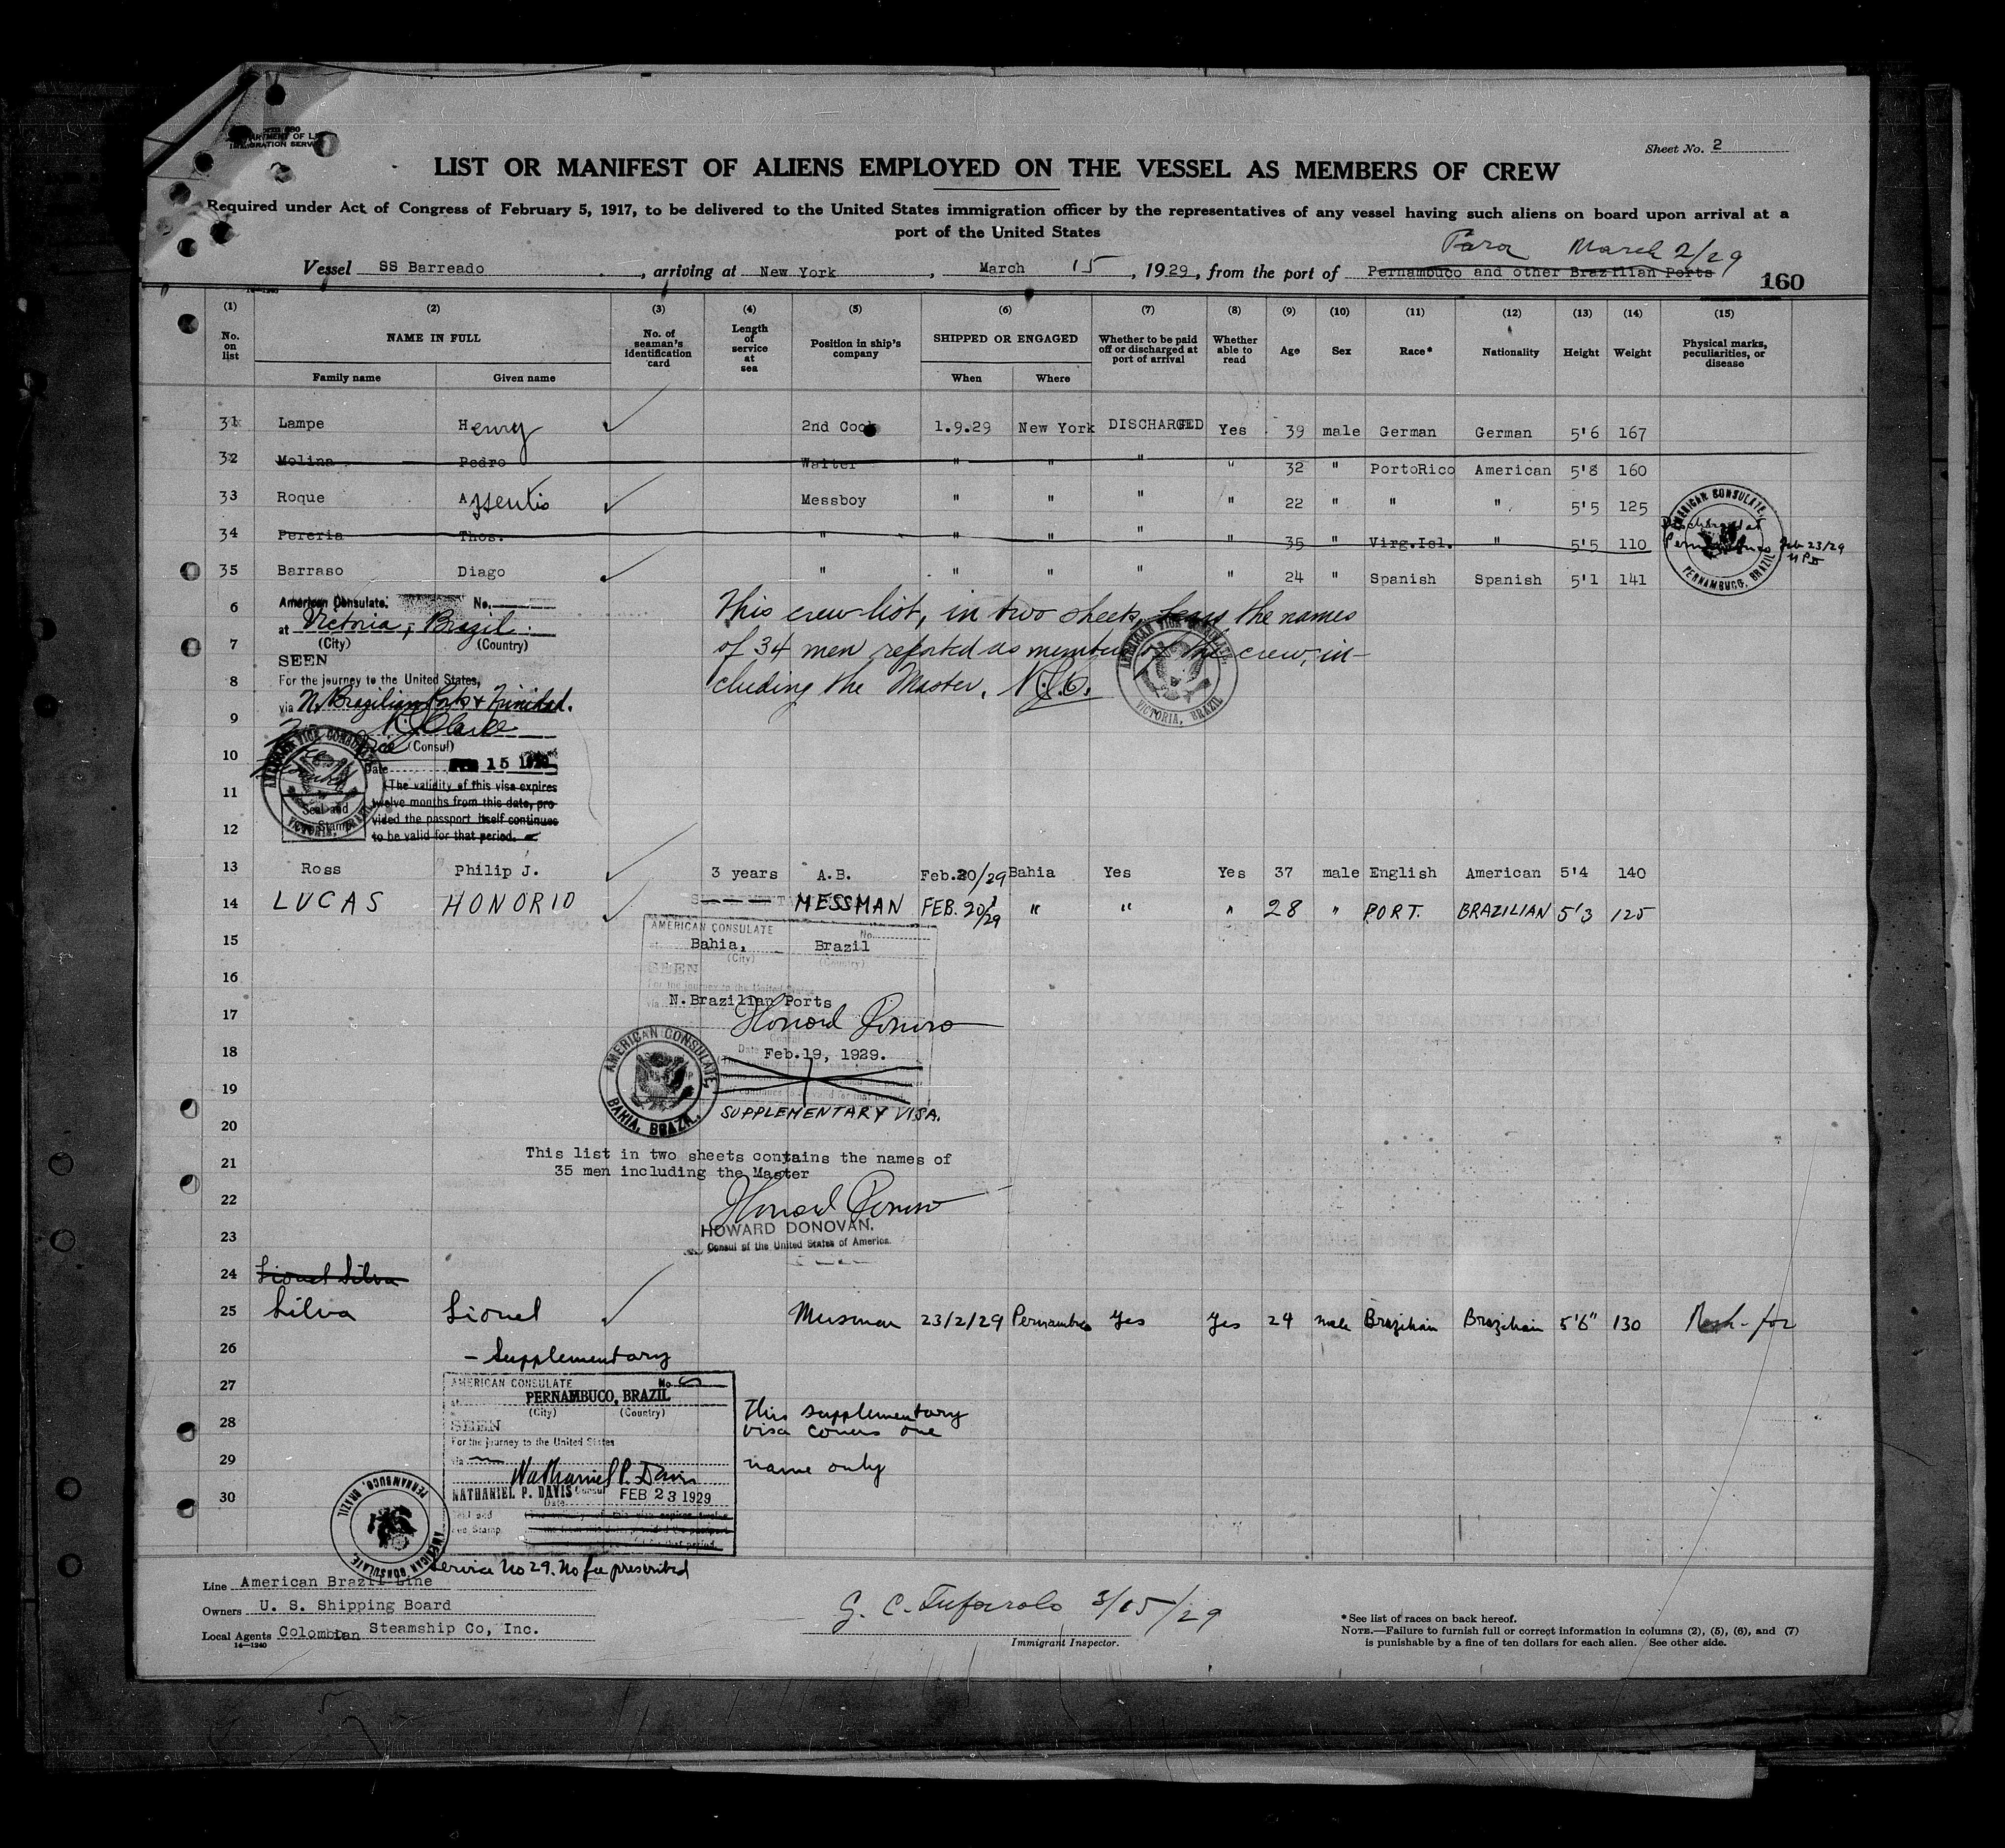 Sheet No. 2
LIST OR MANIFEST OF ALIENS EMPLOYED ON THE VESSEL AS MEMBERS OF CREW
Required under Act of Congress of February 5, 1917, to be delivered to the United States immigration officer by the representatives of any vessel having such aliens on board upon arrival at a
port of the United States
Para March 2/29
Vessel SS Barreado, arriving at New York, March 15, 1929, from the port of Pernambuco and other Brazilian Ports
160
14—1240
(1) (2) (3) (4) (5) (6) (7) (8) (9) (10) (11) (12) (13) (14) (15)
No. on list NAME IN FULL No. of seaman's identification card Length of service at sea Position in ship's company SHIPPED OR ENGAGED Whether to be paid off or discharged at port of arrival Whether able to read Age Sex Race* Nationality Height Weight Physical marks, peculiarities, or disease
Family name Given name When Where
31 Lampe Henry 2nd Cook 1.9.29 New York DISCHARGED Yes 39 male German German 5'6 167
32 Molina Pedro Waiter " " " " 32 " PortoRico American 5'8 160
33 Roque Messboy " " " " 22 " " " 5'5 125
34 Pereria Thos. " " " " " 35 " Virg.Isl. " 5'5 110
AMERICAN CONSULATE, PERNAMBUCO, BRAZIL
Discharged at
Pernambuco Feb 23/29
NPD
35 Barraso Diago " " " " " 24 " Spanish Spanish 5'1 141
6 American Consulate. No.
at Victoria, Brazil
(City) (Country)
7
SEEN
8 For the journey to the United States,
via N. Brazilian Ports & Trinidad.
9 Clarke
Vice (Consul)
10 Date FEB 15 1929
11 (The validity of this visa expires
twelve months from this date, pro-
vided the passport itself continues
12 to be valid for that period.
Seal and
Stamp
AMERICAN VICE CONSULATE, VICTORIA, BRAZIL
This crew list, in two sheets, bears the names
of 34 men reported as members of the crew, in-
cluding the Master.
AMERICAN VICE CONSULATE, VICTORIA, BRAZIL
13 Ross Philip J. 3 years A.B. Feb.20/29 Bahia Yes Yes 37 male English American 5'4 140
14 LUCAS HONORIO MESSMAN FEB. 20/29 " " " 28 " PORT. BRAZILIAN 5'3 125
15 AMERICAN CONSULATE No.
at Bahia, Brazil
(City) (Country)
16 SEEN
For the journey to the United States
via N.Brazilian Ports
17
18 Date Feb.19, 1929.
19
AMERICAN CONSULATE, BAHIA, BRAZIL
SUPPLEMENTARY VISA.
20
21 This list in two sheets contains the names of
35 men including the Master
22
HOWARD DONOVAN.
23 Consul of the United States of America.
24 Lionel Silva
25 Silva Lionel Messman 23/2/29 Pernambuco Yes Yes 24 male Brazilian Brazilian 5'6" 130
26 - Supplementary
27 AMERICAN CONSULATE No
at PERNAMBUCO, BRAZIL
(City) (Country)
28 SEEN
For the journey to the United States
29 via
Nathaniel P. Davis
30 NATHANIEL P. DAVIS Consul FEB 23 1929
Date
Seal and
Fee Stamp
This supplementary
visa covers one
name only
AMERICAN CONSULATE, PERNAMBUCO, BRAZIL
Service No 29. No fee prescribed
Line American Brazil Line
Owners U. S. Shipping Board
Local Agents Colombian Steamship Co, Inc.
14—1240
3/15/29
Immigrant Inspector.
*See list of races on back hereof.
NOTE.—Failure to furnish full or correct information in columns (2), (5), (6), and (7)
is punishable by a fine of ten dollars for each alien. See other side.